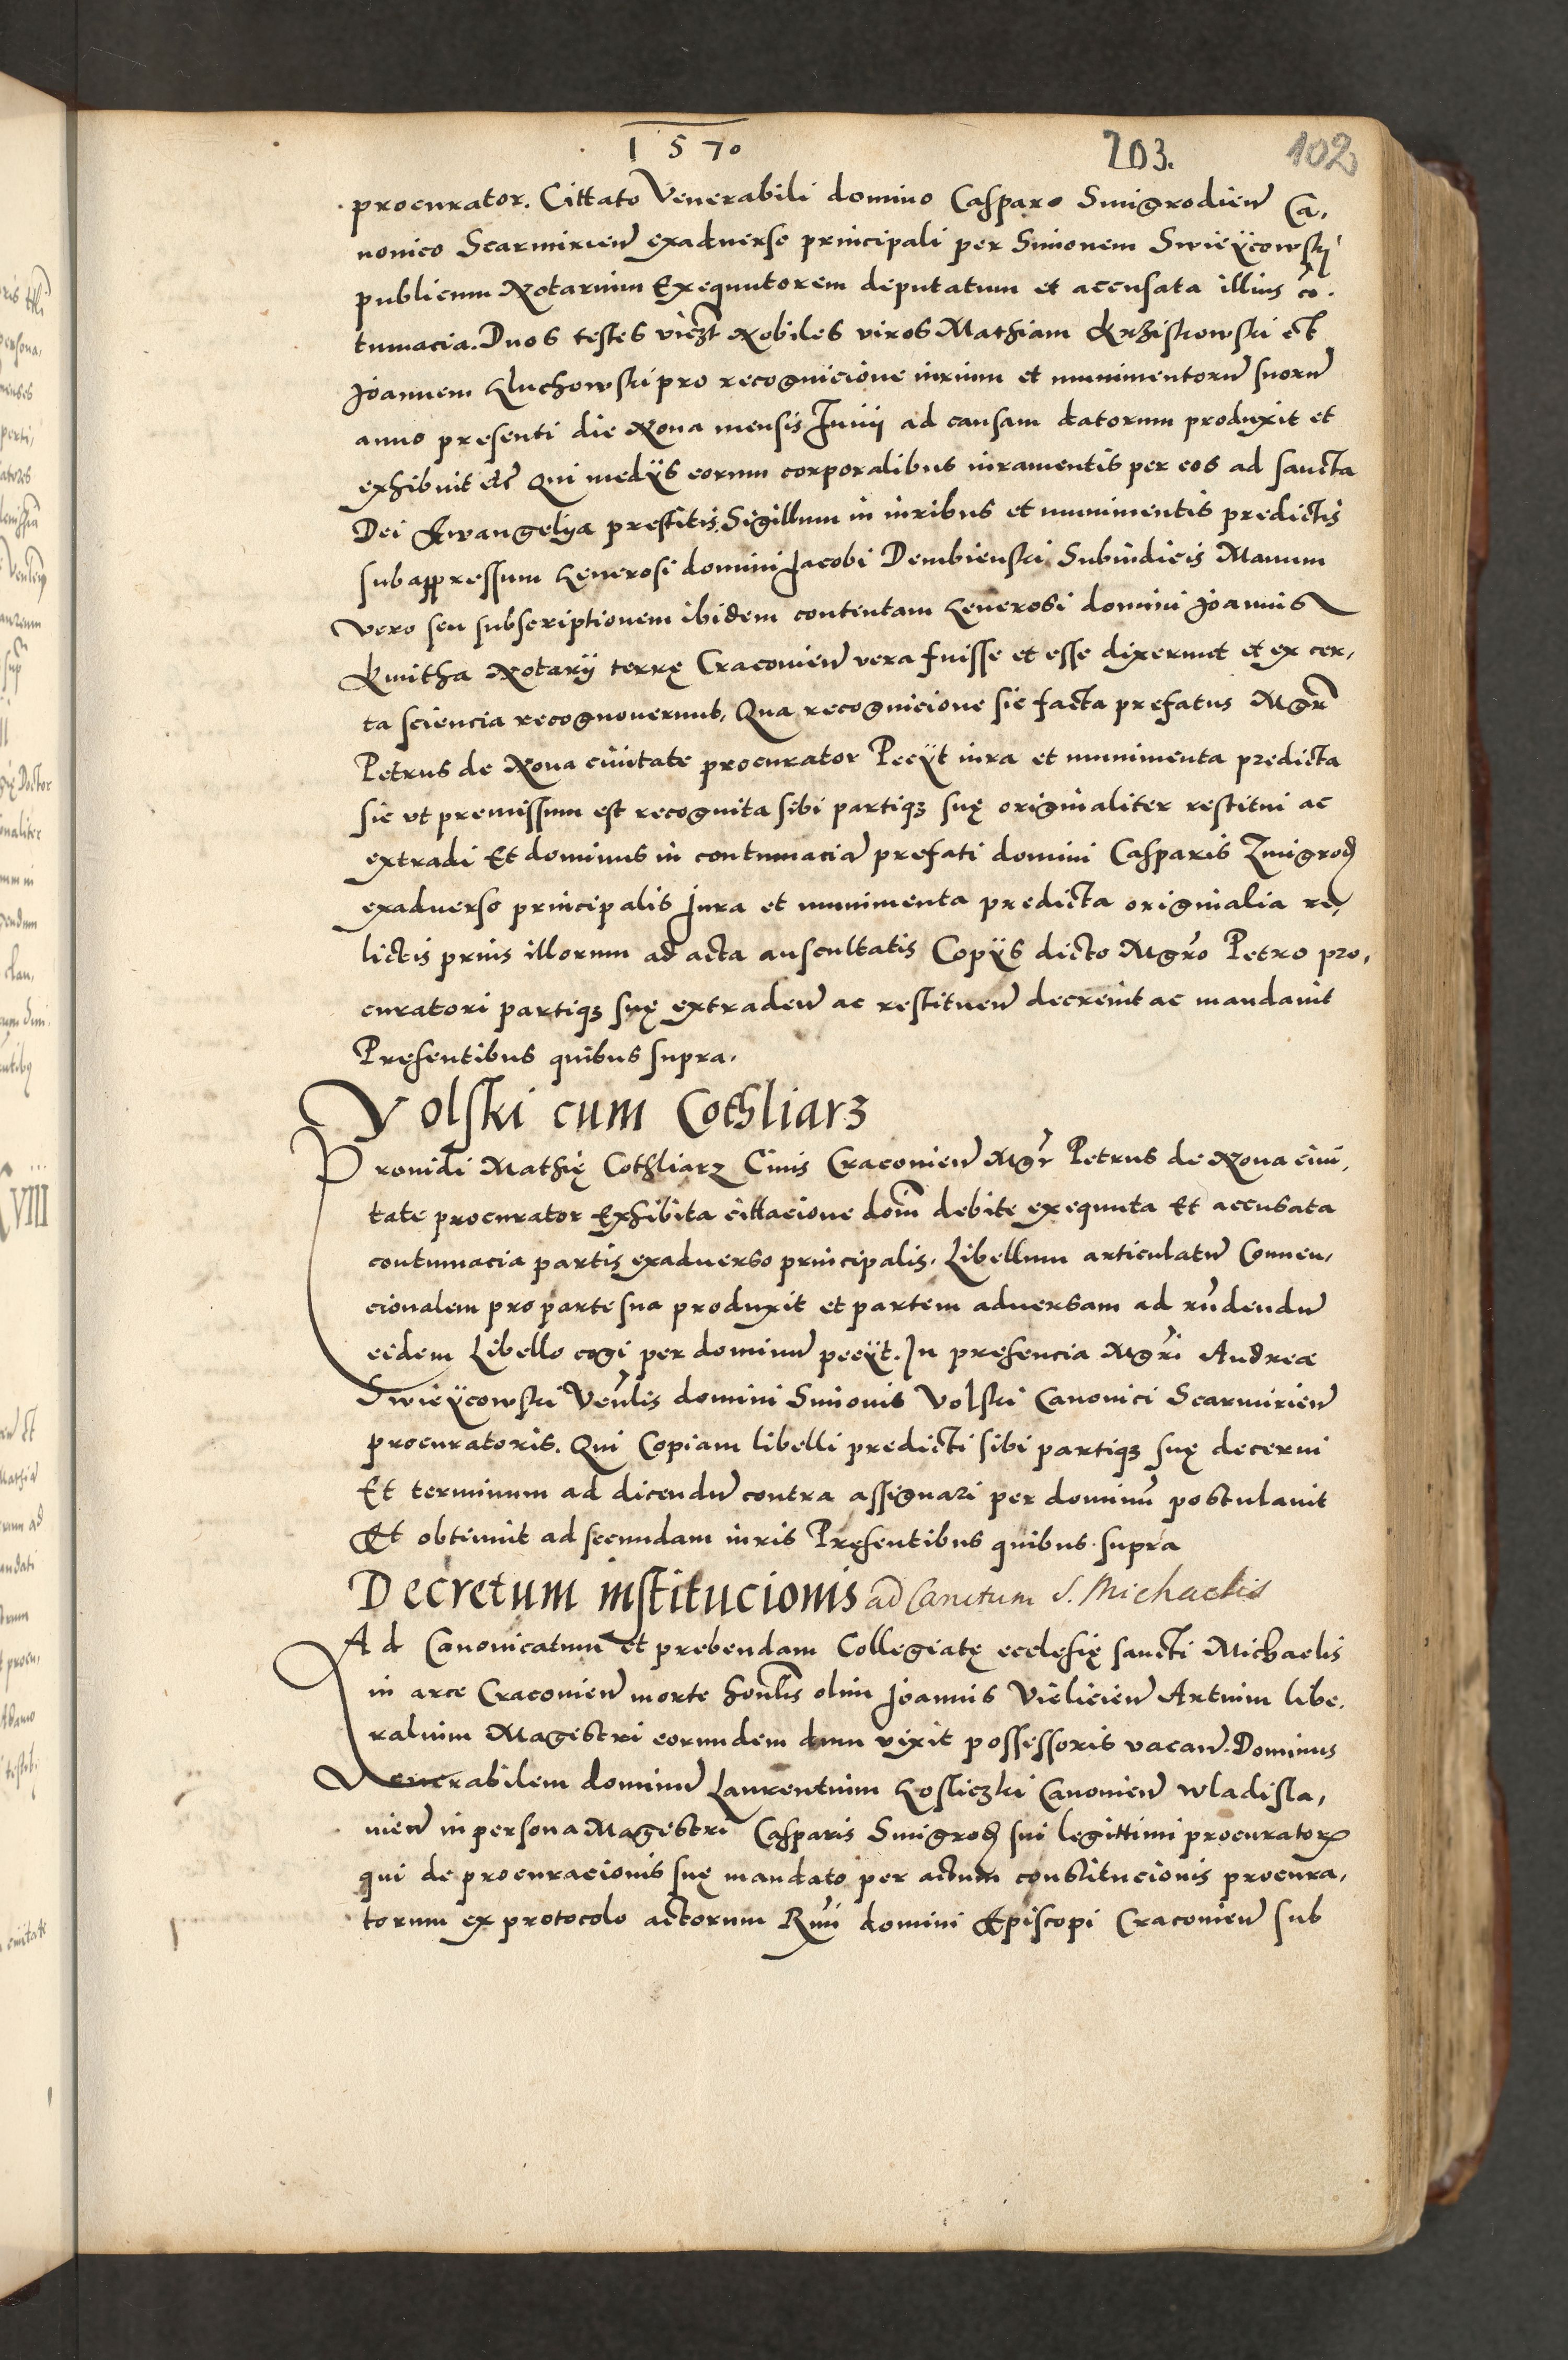 1570 203. 102
procurator. Cittato Venerabili domino Casparo Smigrodien Ca,
nonico Scarmirien exadverso principali per Simonem Swieÿcowski
publicum Notarium Exequutorem deputatum et accusata illius co.
tumacia. Duos testes viczt Nobiles viros Mathiam Krzistowski et
Joannem Gluchowski pro recognicione iurium et munimentoru suoru
anno presenti die Nona mensis Junii ad causam datorum produxit et
exhibuit etc Qui medÿs eorum corporalibus iuramentis per eos ad sancta
Dei Ewangelya prestitis. Sigillum in iuribus et munimentis predictis
subappressum Generosi domini Jacobi Dembienski Subiudicis Manum
vero seu subscriptionem ibidem contentam Generosi domini Joannis
Kmitha Notarÿ terrę Cracovien vera fuisse et esse dixerunt et ex cer,
ta sciencia recognoverunt, Qua recognicione sic facta prefatus Mgr
Petrus de Nova civitate procurator Peciÿt iura et munimenta predicta
sic ut premissum est recognita sibi partiqz suę originaliter restitui ac
extradi Et dominus in contumacia prefati domini Casparis Zmigrod
exadverso principalis Jura et munimenta predicta originalia re,
lictis prius illorum ad acta auscultatis Copÿs dicto Mgro Petro pro,
curatori partiqz suę extraden ac restituen decrevit ac mandavit
Pręsentibus quibus supra.
Volski cum Cothliarz
Providi Mathię Cothliarz Civis Cracovien Mgr Petrus de Nova civi,
tate procurator Exhibita cittacione dom debite exequuta Et accusata
contumacia partis exadverso principalis. Libellum articulatu Conven,
cionalem pro parte sua produxit et partem adversam ad rndendu
eidem Libello cogi per dominu peciÿt. In presencia Mgri Andreæ
Swieÿcowski Venlis domini Simonis Volski Canonici Scarmirien
procuratoris. Qui Copiam libelli predicti sibi partiqz suę decerni
Et terminum ad dicendu contra assignari per dominu postulavit
Et obtinuit ad secundam iuris Pręsentibus quibus supra
Decretum institucionis ad Canctum S. Michaelis
Ad Canonicatum et prebendam Collegiatę ecclesię sancti Michaelis
in arce Cracovien morte honlis olim Joannis Vielicien Artium libe.
ralium Magistri eorumdem dum vixit possessoris vacan. Dominus
Venerabilem dominu Laurentium Gosliczki Canonicu Wladisla,
vien in persona Magistri Casparis Smigrod sui legittimi procuratoris
qui de procuracionis suę mandato per actum constitucionis procura,
torum ex protocolo actorum Rmi domini Episcopi Cracovien sub